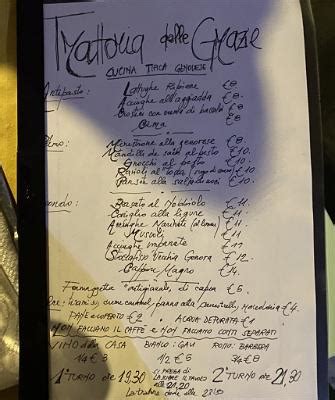 Trattoria delle Grazie
CUCINA TIPICA GENOVESE
Antipasto: Lattughe Ripiene €8
Acciughe all'aggiadda €8
Crostini con €8
Cima €8
Primo: Minestrone alla genovese €8.
Mandilli de saea al pesto €10.
Gnocchi al pesto €10.
Ravioli al tocco (sugo di carne) €10.
Pansoti alla salsa di noci €10.
Secondo: €11.
Coniglio alla ligure €11
Acciughe €11
Muscoli €11
Acciughe impanate €11
Stoccafisso Vecchia Genova €12.
Cappon Magro €14.
Formaggette artigianali, di capra €6.
panna alla Macedonia €4.
PANE e COPERTO €2 ACQUA DEPURATA €1
NON FACCIAMO IL CAFFÈ e NON FACCIAMO CONTI SEPARATI
VINO della CASA BIANCO: GAVI ROSSO: BARBERA
1/4 €3 1/2 €5 3/4 €8
1° TURNO ore 19,30 SI PREGA DI LASCIARE IL TAVOLO alle 21,20 2° TURNO ore 21,30